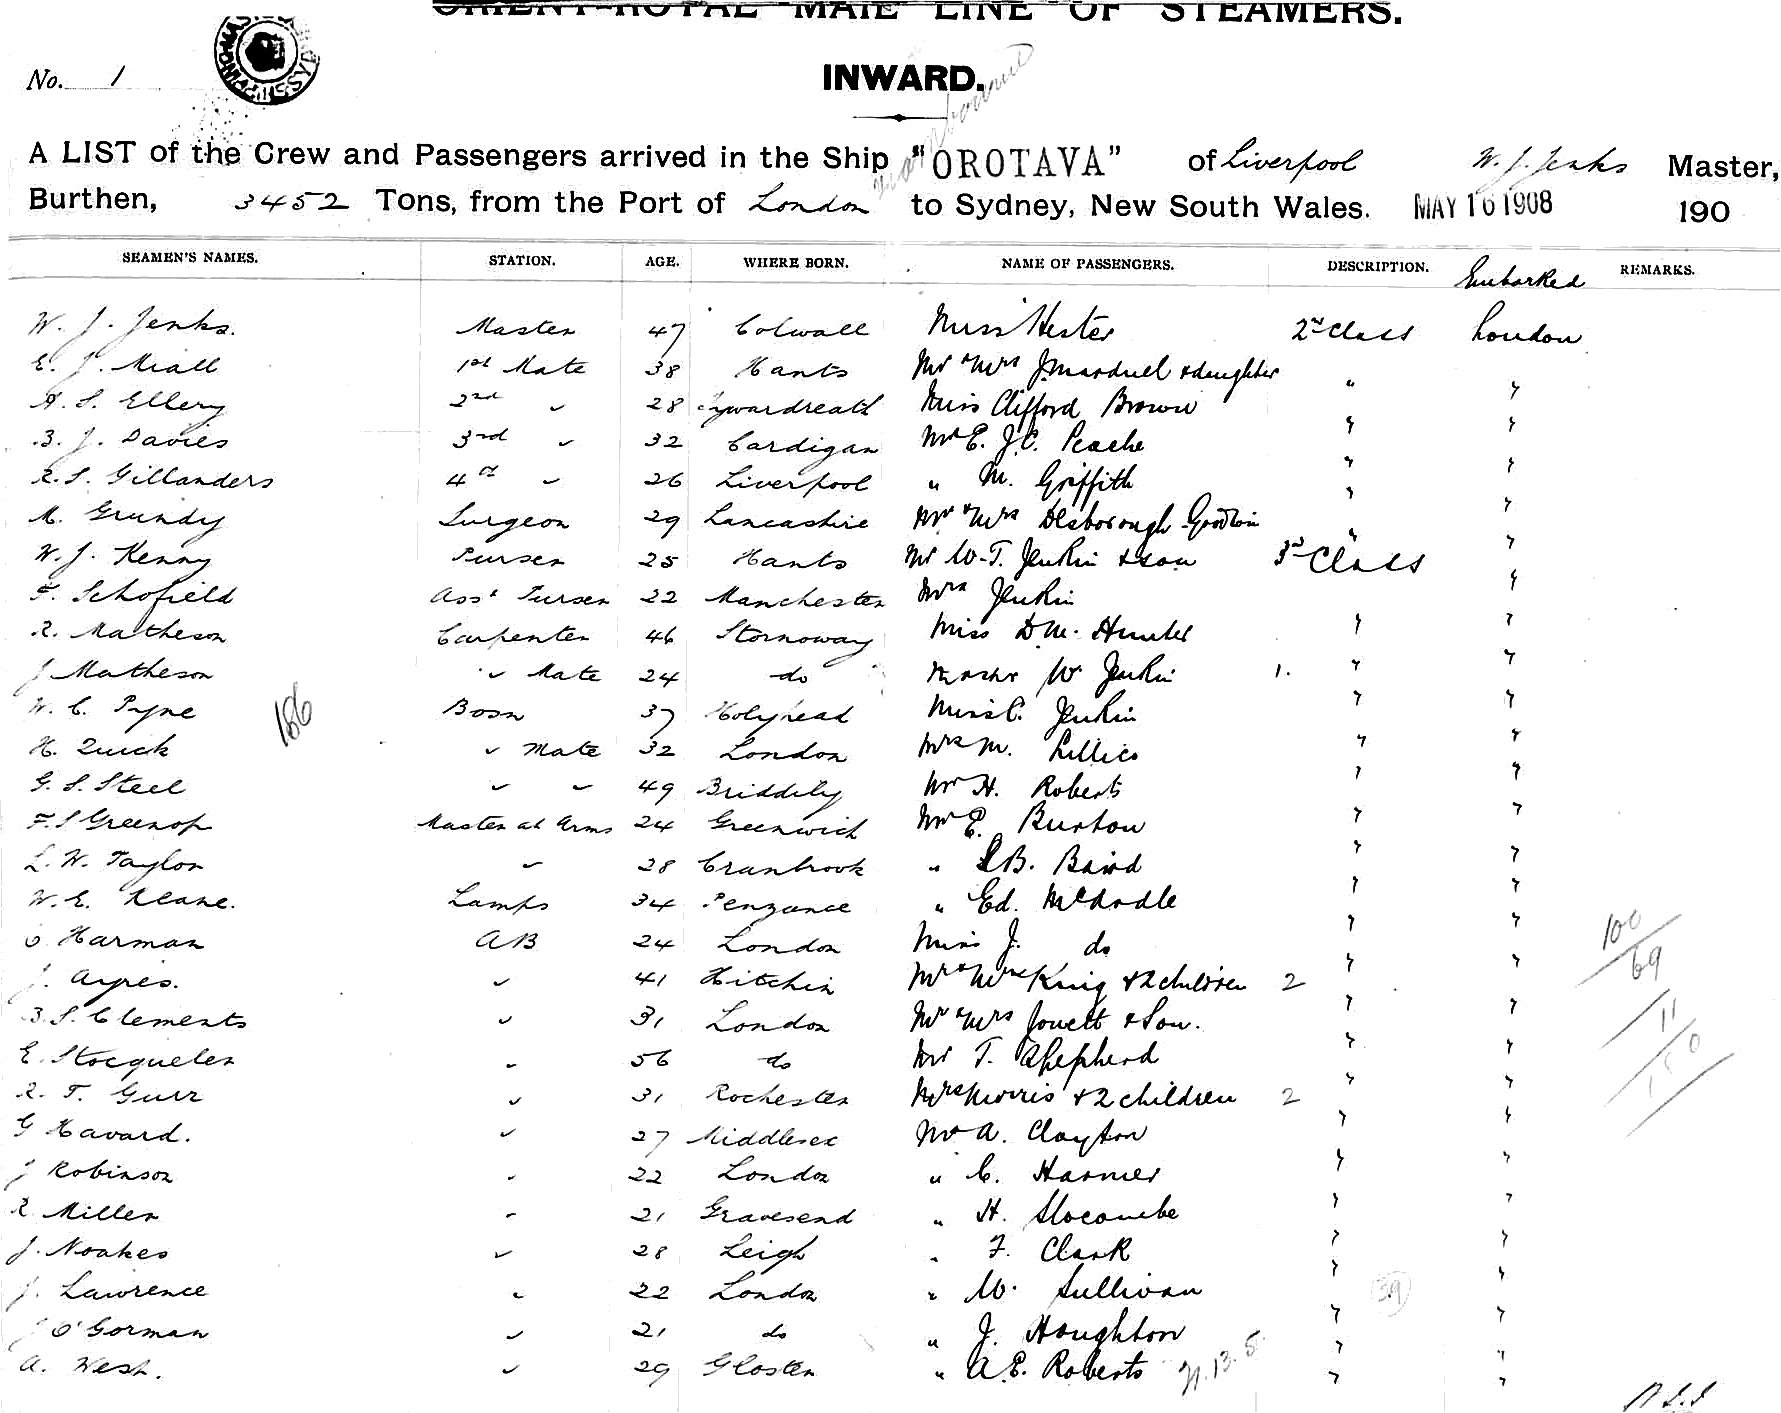 ORIENT-ROYAL MAIL LINE OF STEAMERS.
No. 1
INWARD.
A LIST of the Crew and Passengers arrived in the Ship "OROTAVA" of Liverpool W. J. Jenks Master,
Burthen, 3452 Tons, from the Port of London to Sydney, New South Wales. MAY 16 1908 190
SEAMEN'S NAMES. STATION. AGE. WHERE BORN. NAME OF PASSENGERS. DESCRIPTION. Embarked REMARKS.
W. J. Jenks. Master 47 Colwall Miss Hester 2nd Class London
E. J. Miall 1st Mate 38 Hants Mr & Mrs J. Marduel & daughter " "
A. S. Ellery 2nd " 28 Tywardreath Miss Clifford Brown " "
B. J. Davies 3rd " 32 Cardigan Mr E. J. C. Peache " "
R. S. Gillanders 4th " 26 Liverpool " M. Griffith " "
M. Grundy Surgeon 29 Lancashire Mr & Mrs Desborough-Goodwin " "
W. J. Kenny Purser 25 Hants Mr W. T. Jenkin & son 3rd Class "
F. Schofield Asst Purser 22 Manchester Mrs Jenkin "
R. Matheson Carpenter 46 Stornoway Miss D M. Hunter " "
J Matheson " Mate 24 do Master W Jenkin 1. " "
W. C. Pyne Bosn 37 Holyhead Miss C. Jenkin " "
186
H. Quick " Mate 32 London Mrs M. Lillies " "
G. S. Steel " " 49 Briddily Mr H. Roberts " "
F. S Greenop Master at Arms 24 Greenwich Mr E. Burton " "
L. W. Taylor " 28 Cranbrook " B. Baird " "
W. E. Keane. Lamps 34 Penzance " Ed. McArdle " "
Harman AB 24 London Miss J. do " "
100
69
J. Ayres. " 41 Hitchin Mr & Mrs King & 2 children 2 " "
B. S. Clements " 31 London Mr & Mrs Jowett & Son. " "
11
E. Stocqueler " 56 do Mr T. Shepherd " "
R. T. Gurr " 31 Rochester Mrs Morris & 2 children 2 " "
G Havard. " 27 Middlesex Mr A. Clayton " "
J Robinson " 22 London " C. Harmer " "
R Miller " 21 Gravesend " H. Slocombe " "
J. Noakes " 28 Leigh " F. Clark " "
J. Lawrence " 22 London " W. Sullivan " "
39
J O'Gorman " 21 do " J. Houghton " "
A. West. " 29 Gloster " A. E. Roberts " "